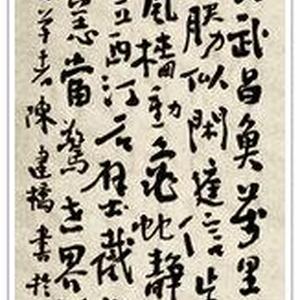 武昌魚萬里
勝似閑庭信步
風檣動龜蛇靜
立西江石壁截
恙當驚世界
陳建橋書於